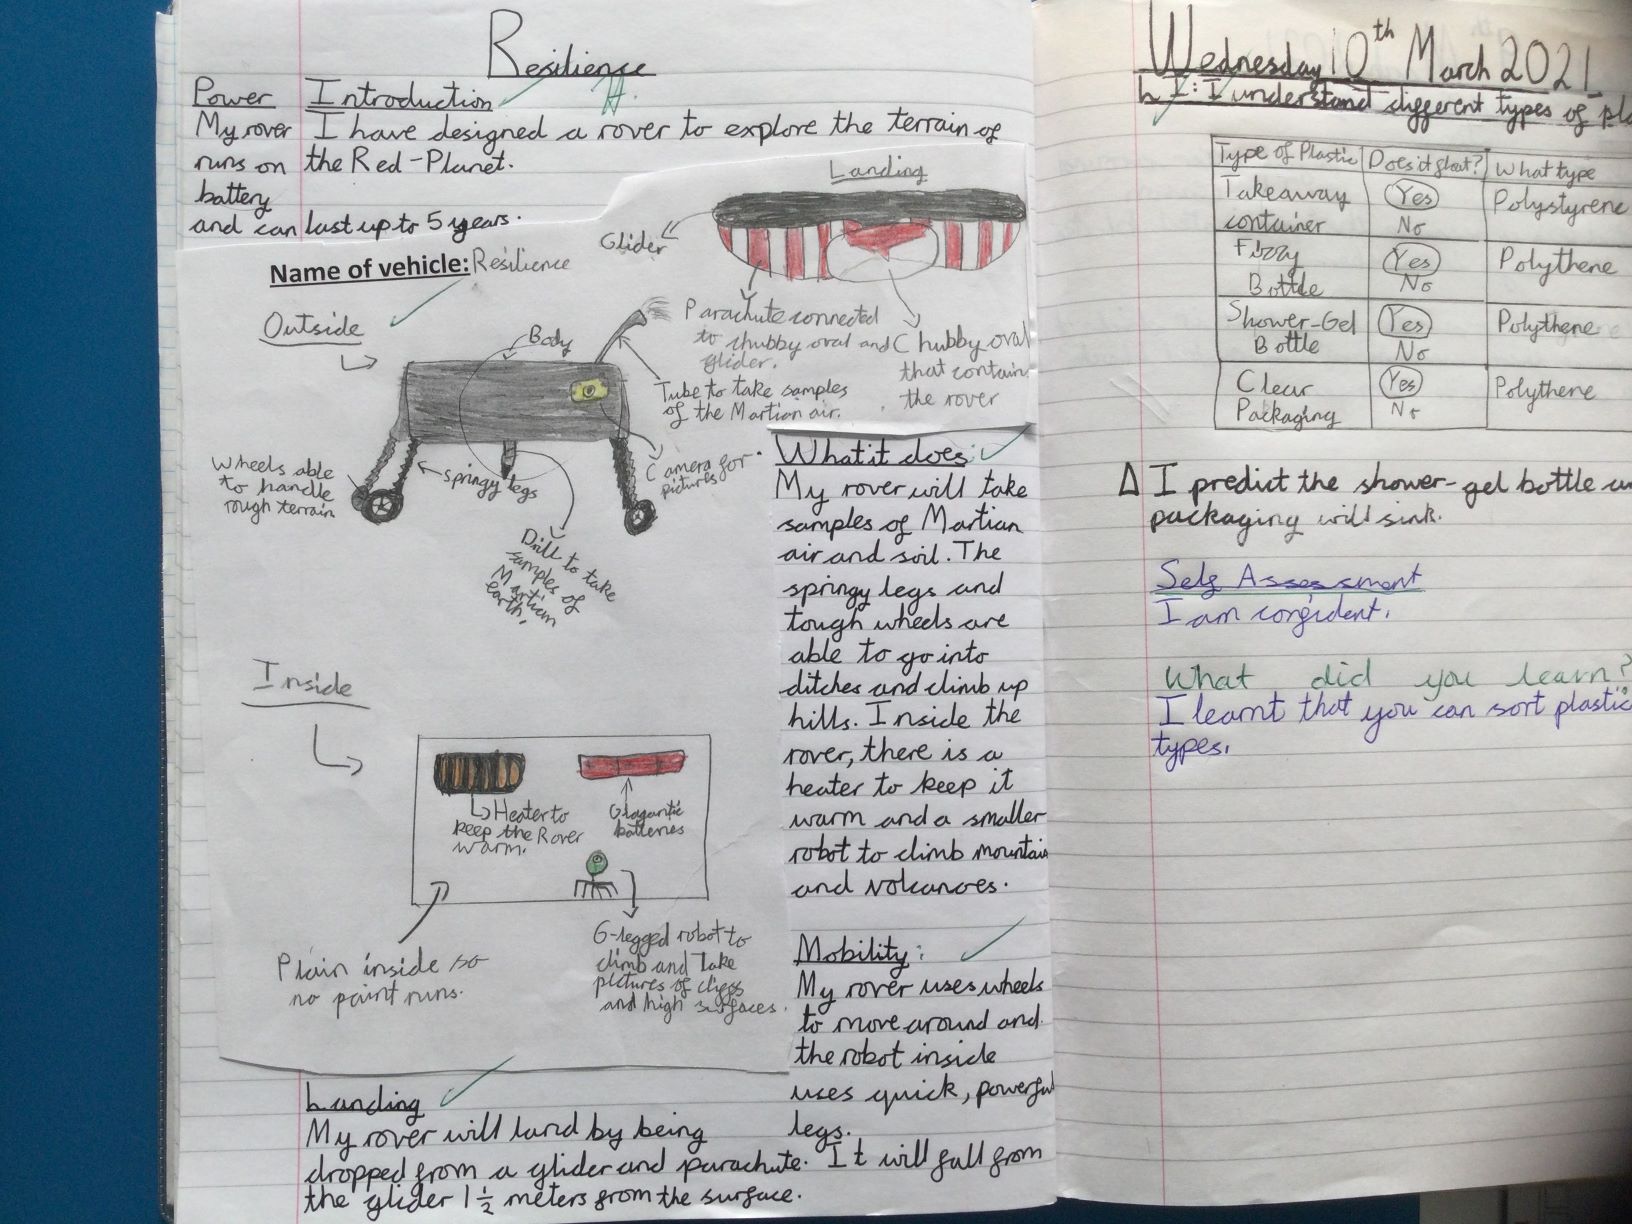 Resilience
Power
My rover
runs on
battery
and can last up to 5 years.
Introduction
I have designed a rover to explore the terrain of
the Red-Planet.
Landing
Glider
Parachute connected
to chubby oval and
glider.
Chubby oval
that contain
the rover
Name of vehicle: Resilience
Outside
Body
Tube to take samples
of the Martian air.
Camera for
pictures
Wheels able
to handle
rough terrain
springy legs
Drill to take
samples of
Martian
earth.
Inside
Heater to
keep the Rover
warm.
Gigantic
batteries
Plain inside so
no paint runs.
6-legged robot to
climb and Take
pictures of cliffs
and high surfaces.
What it does:
My rover will take
samples of Martian
air and soil. The
springy legs and
tough wheels are
able to go into
ditches and climb up
hills. Inside the
rover, there is a
heater to keep it
warm and a smaller
robot to climb mountain
and volcanoes.
Mobility:
My rover uses wheels
to move around and
the robot inside
uses quick, powerful
legs.
Landing
My rover will land by being
dropped from a glider and parachute. It will fall from
the glider 1 1/2 meters from the surface.
Wednesday 10th March 2021
LI: I understand different types of pla
Type of Plastic Does it float? What type
Takeaway container Yes No Polystyrene
Fizzy Bottle Yes No Polythene
Shower-Gel Bottle Yes No Polythene
Clear Packaging Yes No Polythene
Δ I predict the shower-gel bottle
packaging will sink.
Self Assessment
I am confident.
What did you learn?
I learnt that you can sort plastic
types.